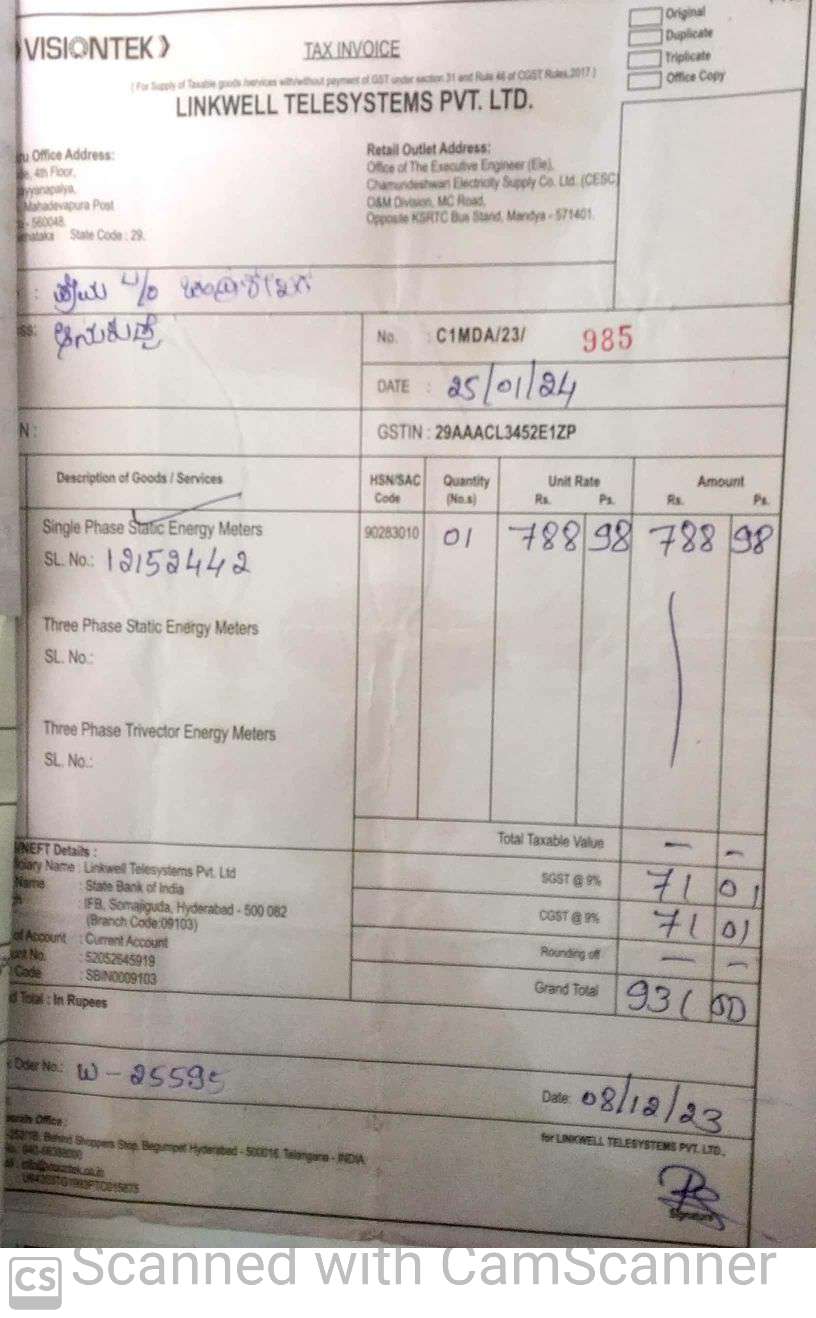 VISIONTEK
TAX INVOICE
Original
Duplicate
Triplicate
Office Copy
( For Supply of Taxable goods /services with/without payment of GST under section 31 and Rule 46 of CGST Rules,2017 )
LINKWELL TELESYSTEMS PVT. LTD.
Office Address:
4th Floor,
Mahadevapura Post
- 560048.
State Code : 29.
Retail Outlet Address:
Office of The Executive Engineer (Ele),
Chamundeshwari Electricity Supply Co. Ltd. (CESC)
O&M Division, MC Road,
Opposite KSRTC Bus Stand, Mandya - 571401.
No. : C1MDA/23/ 985
DATE : 25/01/24
N :
GSTIN : 29AAACL3452E1ZP
Description of Goods / Services
HSN/SAC Code
Quantity (No.s)
Unit Rate
Rs. Ps.
Amount
Rs. Ps.
Single Phase Static Energy Meters 90283010 01 788 98 788 98
SL. No.: 12152442
Three Phase Static Energy Meters
SL. No.:
Three Phase Trivector Energy Meters
SL. No.:
Total Taxable Value — —
SGST @ 9% 71 01
CGST @ 9% 71 01
Rounding off — —
Grand Total 931 00
NEFT Details :
Name : Linkwell Telesystems Pvt. Ltd
Name : State Bank of India
: IFB, Somajiguda, Hyderabad - 500 082
(Branch Code:09103)
of Account : Current Account
No. : 52052645919
Code : SBIN0009103
Total : In Rupees
Oder No.: W - 25595
Date: 08/12/23
Office :
Behind Shoppers Stop, Begumpet Hyderabad - 500016. Telangana - INDIA
for LINKWELL TELESYSTEMS PVT. LTD.,
CS Scanned with CamScanner